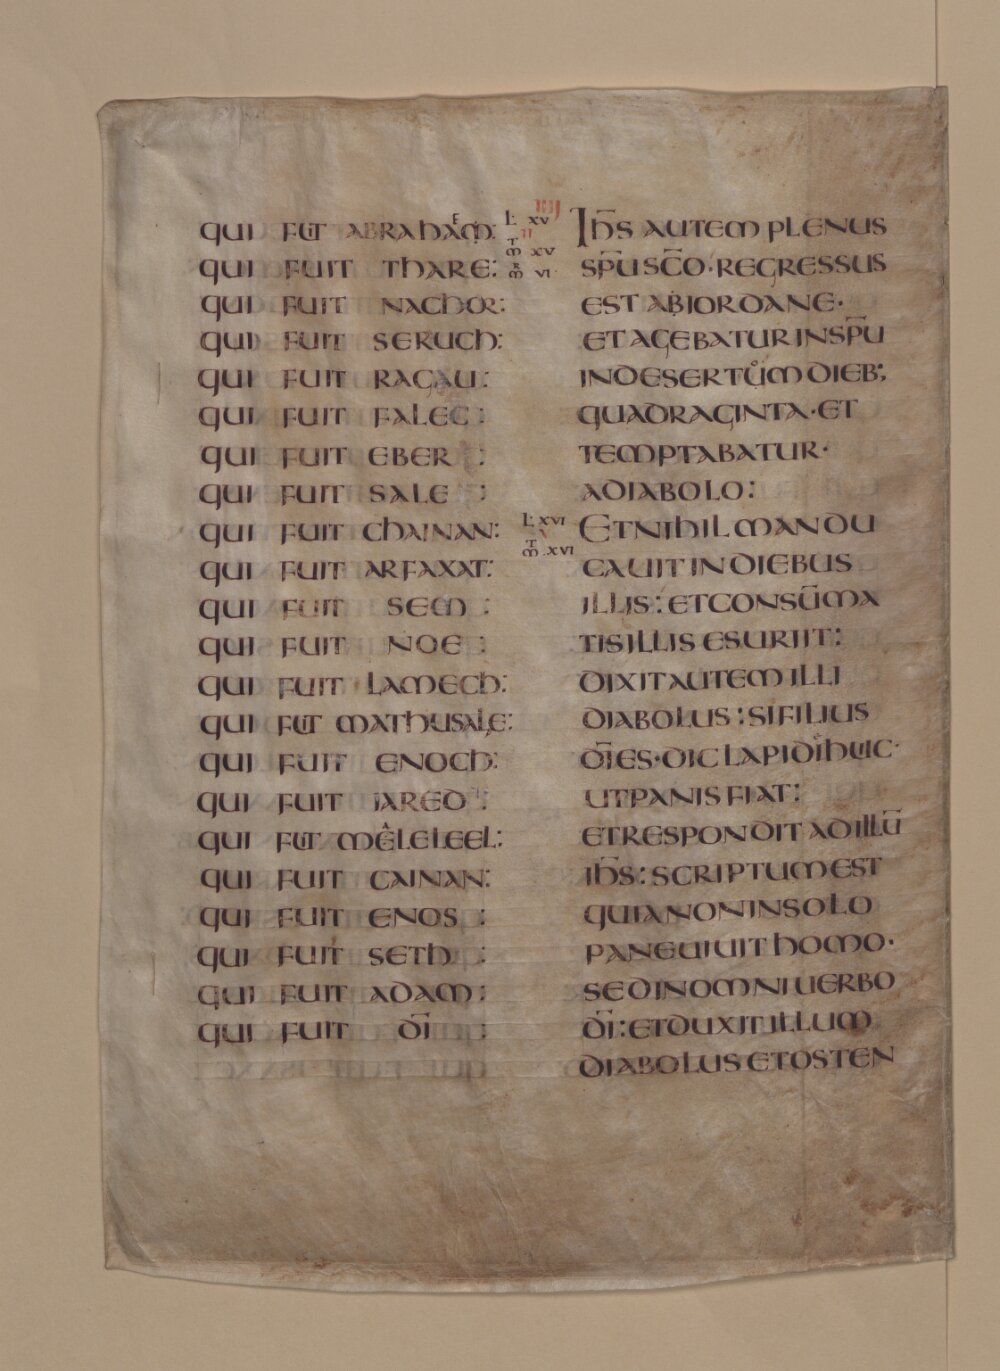 QUI FUIT ABRAHAM:
QUI FUIT THARE:
QUI FUIT NACHOR:
QUI FUIT SERUCH:
QUI FUIT RAGAU:
QUI FUIT FALEC:
QUI FUIT EBER :
QUI FUIT SALE :
QUI FUIT CHAINAN:
QUI FUIT ARFAXAT:
QUI FUIT SEM :
QUI FUIT NOE :
QUI FUIT LAMECH:
QUI FUIT MATHUSALE:
QUI FUIT ENOCH:
QUI FUIT IARED :
QUI FUIT MELELEEL:
QUI FUIT CAINAN:
QUI FUIT ENOS :
QUI FUIT SETH :
QUI FUIT ADAM:
QUI FUIT DĪ :
L XV IIII
M XV
M VI
IHS̄ AUTEM PLENUS
SPŪ SCŌ·REGRESSUS
EST ABIORDANE·
ET AGEBATUR IN SPŪ
IN DESERTUM DIEB:
QUADRAGINTA·ET
TEMPTABATUR·
ADIABOLO:
L XVI
M XVI
ET NIHIL MANDU
CAUIT IN DIEBUS
ILLIS: ET CONSŪMA
TIS ILLIS ESURIIT:
DIXIT AUTEM ILLI
DIABOLUS: SI FILIUS
DĪ ES·DIC LAPIDI HUIC·
UT PANIS FIAT:
ET RESPONDIT AD ILLŪ
IHS̄: SCRIPTUM EST
QUIA NON IN SOLO
PANE UIUIT HOMO·
SED IN OMNI UERBO
DĪ: ET DUXIT ILLUM
DIABOLUS ET OSTEN